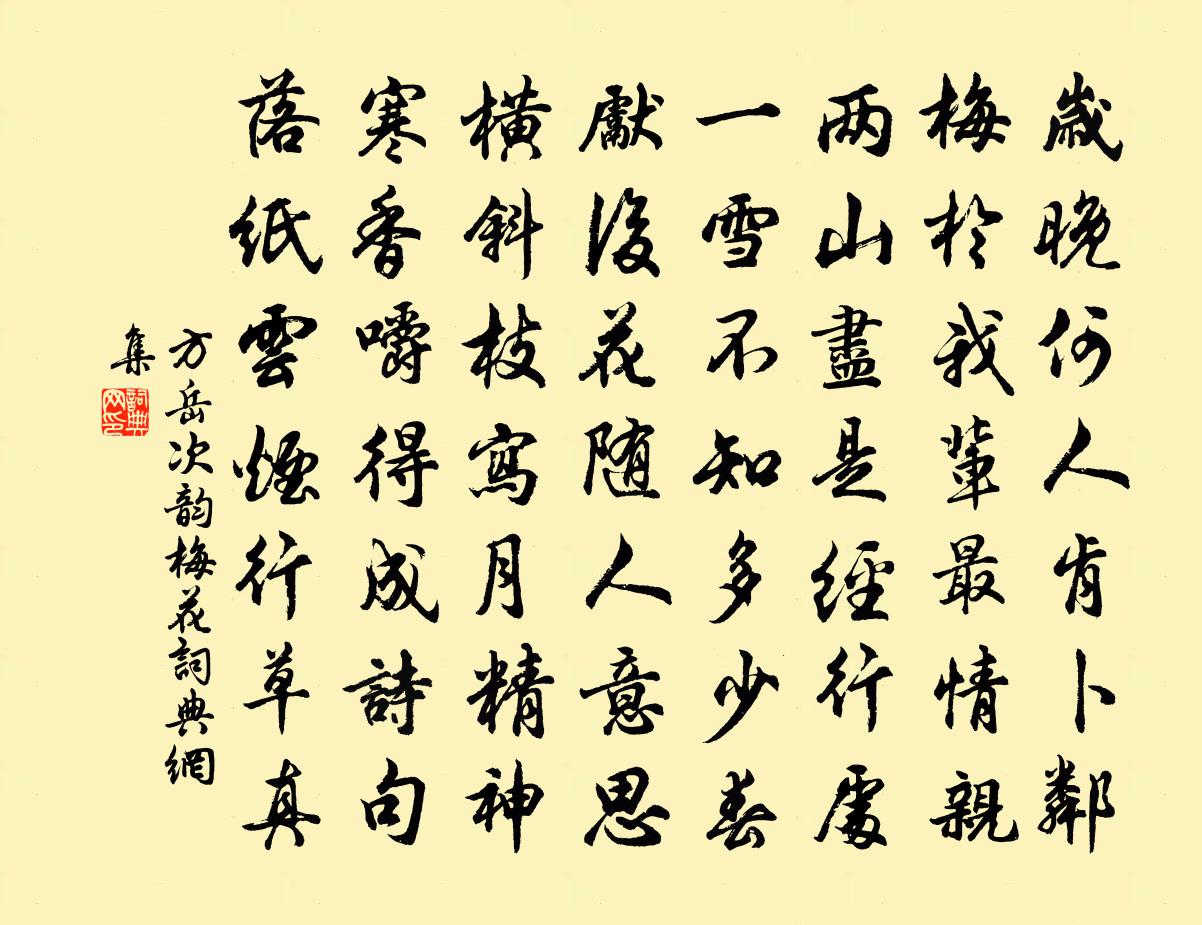 歲晚何人肯卜鄰
梅於我輩最情親
兩山盡是經行處
一雪不知多少春
獻後花隨人意思
橫斜枝寫月精神
寒香嚼得成詩句
落紙雲煙行草真
方岳次韵梅花詞典網
集
詞典網印